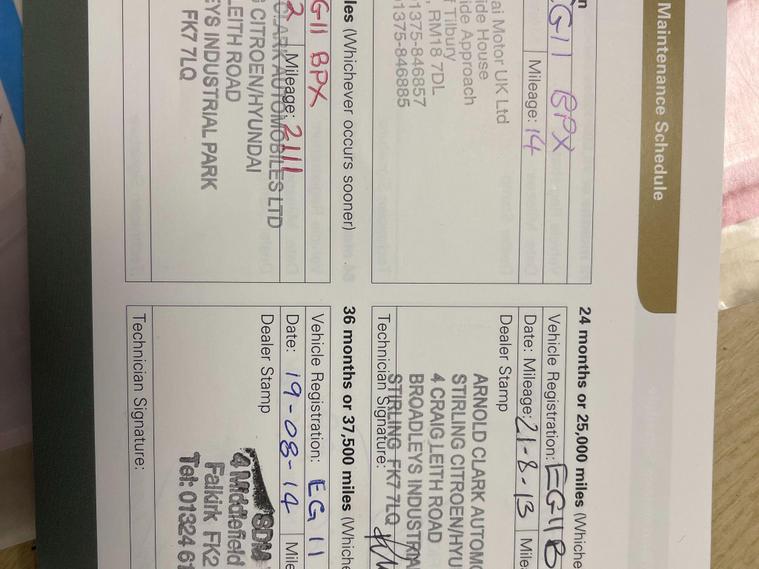 Maintenance Schedule
EG11 BPX
Mileage: 14
ai Motor UK Ltd
ide House
ide Approach
f Tilbury
, RM18 7DL
1375-846857
01375-846885
les (Whichever occurs sooner)
G11 BPX
2 Mileage: 2111
CLARK AUTOMOBILES LTD
G CITROEN/HYUNDAI
LEITH ROAD
EYS INDUSTRIAL PARK
FK7 7LQ
24 months or 25,000 miles (Whiche
Vehicle Registration: EG11B
Date: Mileage: 21-8-13 Milea
Dealer Stamp
ARNOLD CLARK AUTOMO
STIRLING CITROEN/HYU
4 CRAIG LEITH ROAD
BROADLEYS INDUSTRIA
STIRLING FK7 7LQ
Technician Signature:
36 months or 37,500 miles (Whiche
Vehicle Registration: EG 11
Date: 19-08-14 Mile
Dealer Stamp
SDM
4 Middlefield
Falkirk FK2
Tel: 01324 61
Technician Signature: